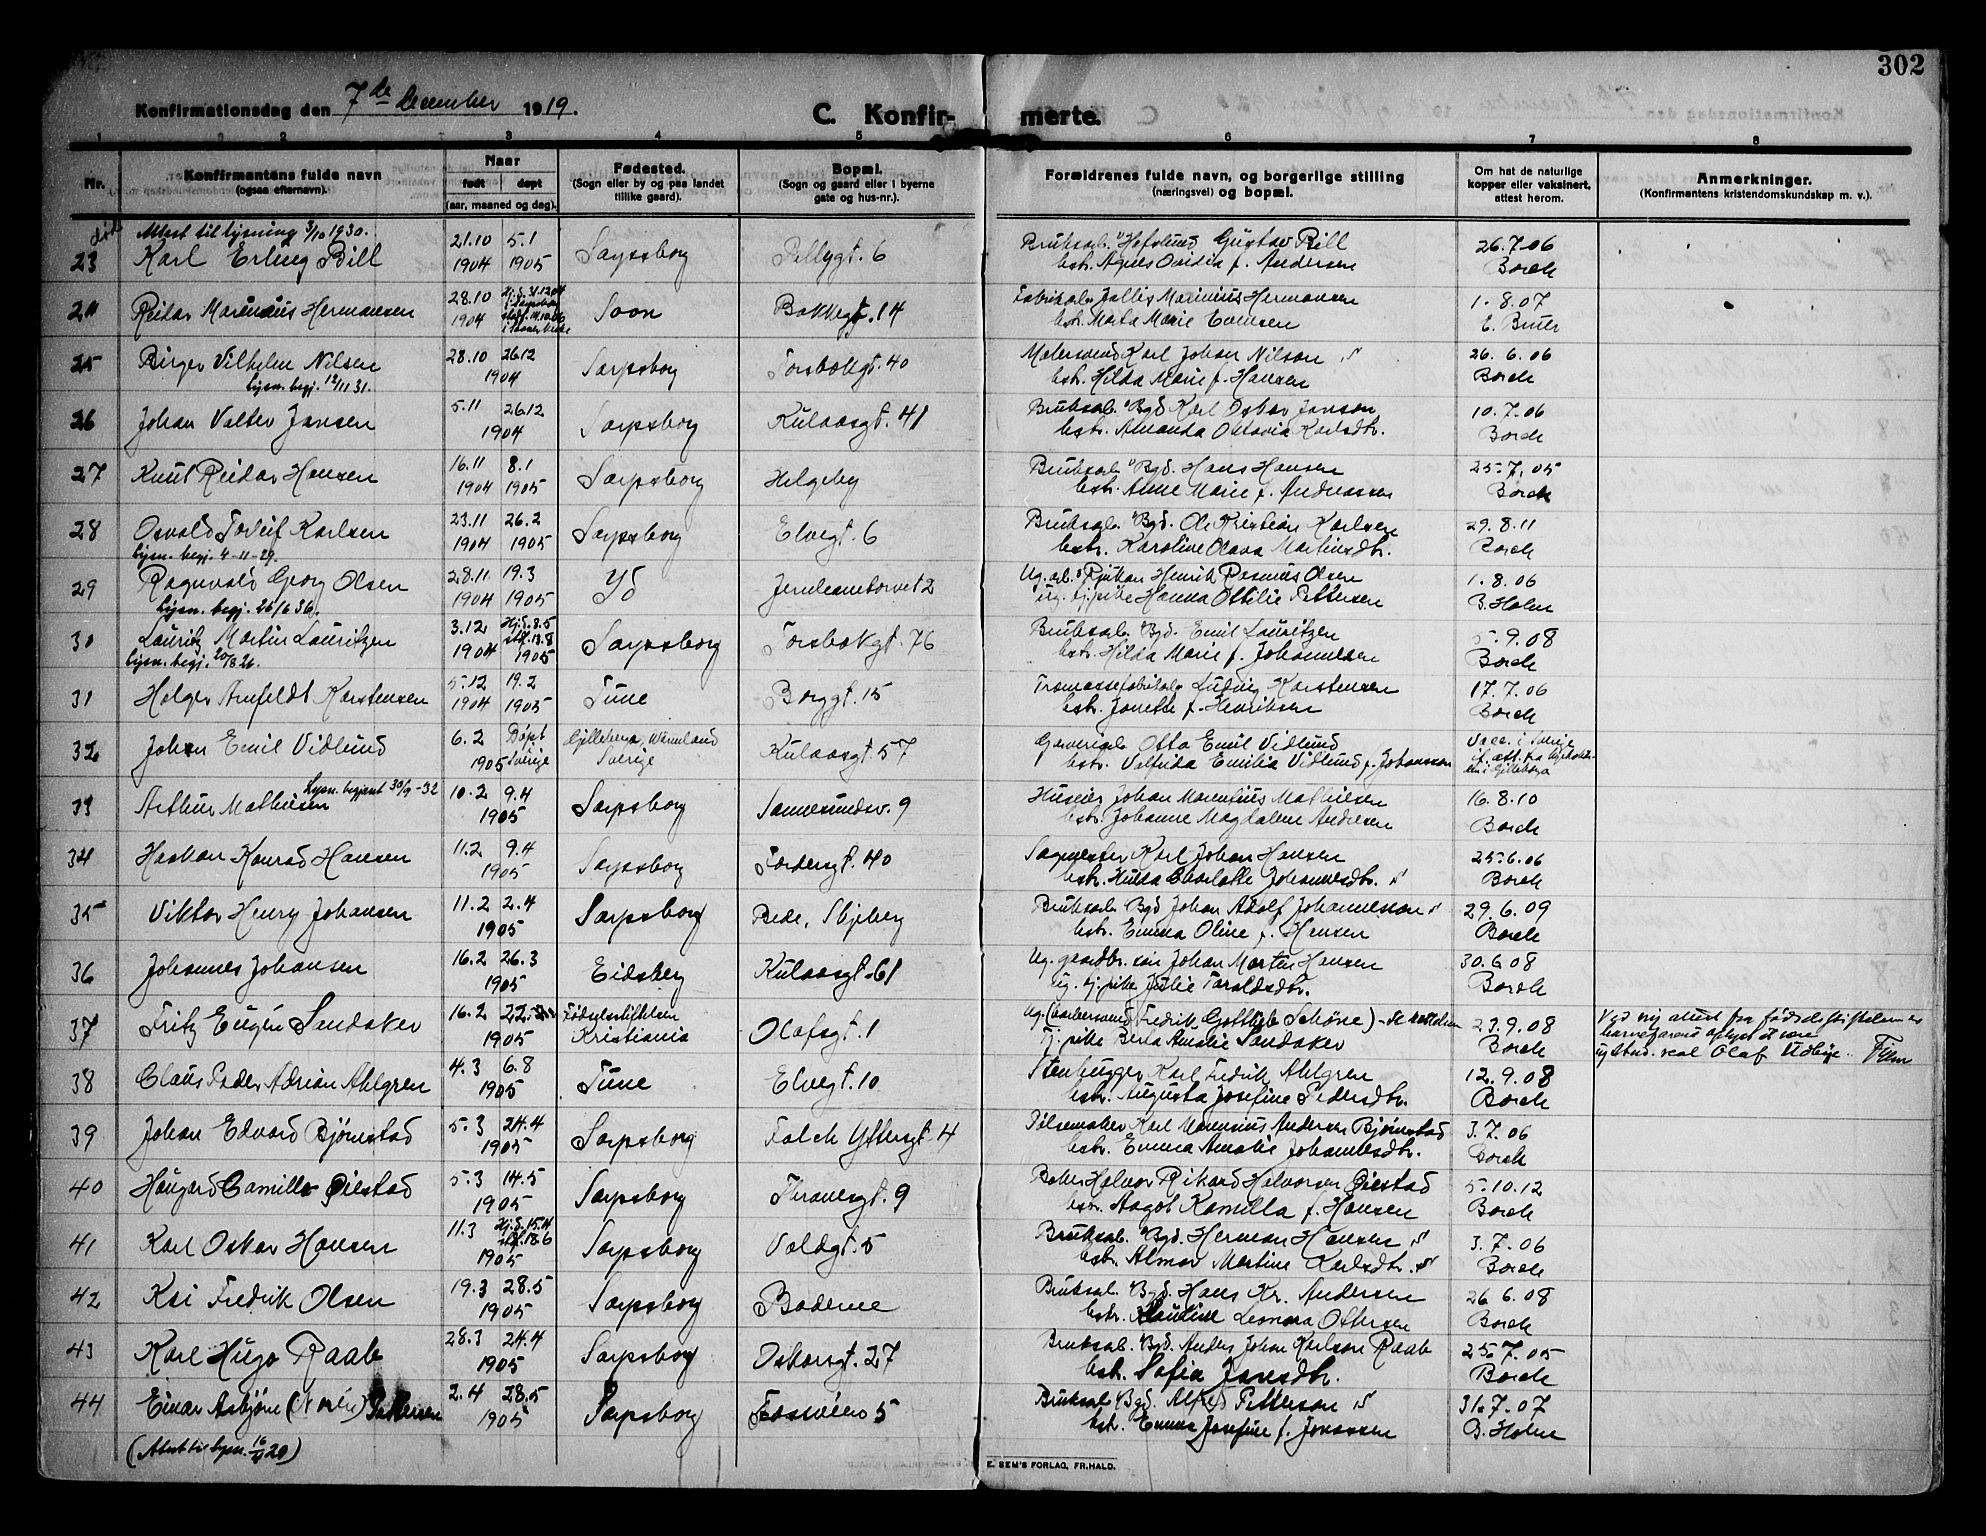 302
Konfirmationsdag den 7de December 1919.
C. Konfir- merte.
1 2 3 4 5 6 7 8
Nr.
Konfirmantens fulde navn
(ogsaa efternavn).
Naar
født døpt
(aar, maaned og dag).
Fødested.
(Sogn eller by og paa landet
tillike gaard).
Bopæl.
(Sogn og gaard eller i byerne
gate og hus-nr.).
Forældrenes fulde navn, og borgerlige stilling
(næringsvei) og bopæl.
Om hat de naturlige
kopper eller vaksinert,
attest herom.
Anmerkninger.
(Konfirmantens kristendomskundskap m. v.).
Attest til lysning 3/10 1930.
23 Karl Erling Bill 21.10 1904 5.1 1905 Sarpsborg Pellygt. 6 Bruksarb. Hafslund Gustav Bill 26.7.06
hstr. Agnes Ovidia f. Andersen Borch
24 Reidar Marinius Hermansen 28.10 1904 Hj.d. 31.12.04 Soon Bakkegt. 14 Fabrikarb. Marinius Hermansen 1.8.07
hstr. Marta Marie Evensen
25 Birger Vilhelm Nilsen 28.10 26.12 1904 Sarpsborg Torsbekkgt. 40 Malersvend Karl Johan Nilson 26.6.06
lysn. begj. 12/11 31. hstr. Hilda Marie f. Hansen Borch
26 Johan Valter Jansen 5.11 26.12 1904 Sarpsborg Kulaasgt. 41 Bruksarb. Bgd Karl Oskar Janson 10.7.06
hstr. Amanda Oktavia Karlsdtr. Borch
27 Knut Reidar Hansen 16.11 1904 8.1 1905 Sarpsborg Helgeby Bruksarb. Bgd. Hans Hansen 25.7.05
hstr. Anne Marie f. Andreassen Borch
28 Osvald Torleif Karlsen 23.11 1904 26.2 1905 Sarpsborg Elvegt. 6 Bruksarb. Bgd. Ole Kristian Karlsen 29.8.11
lysn. begj. 4-11-29. hstr. Karoline Olava Martinsdtr. Borch
29 Ragnvald Georg Olsen 28.11 1904 19.3 1905 Id Jernbanetorvet 2 Ug. arb. Rjukan Henrik Rasmus Olsen 1.8.06
lysn. begj. 26/6 36. ug. tj.pike Hanna Ottilie Pettersen B. Holm
30 Lauritz Martin Lauritzen 3.12 1904 Hj.d. 8.5 stf. 13.8 1905 Sarpsborg Torsbekgt. 76 Bruksarb. Bgd. Emil Lauritzen 5.9.08
lysn. begj. 20/8 26. hstr. Hilda Marie f. Johannesen Borch
31 Holger Arnfeldt Karstensen 5.12 1904 19.2 1905 Tune Borggt. 15 Træmassefabrikarb. Ludvig Karstensen 17.7.06
hstr. Janette f. Henriksen Borch
32 Johan Emil Vidlund 6.2 1905 Døpt Sverige Gilleberga, Värmland Sverige Kulaasgt. 57 Garveriarb. Otto Emil Vidlund Vacc. i Sverige
hstr. Valfrida Emilia Vidlund f. Johansson
Lysn. begjært 30/9-32
33 Arthur Mathiesen 10.2 9.4 1905 Sarpsborg Sannesundsv. 9 Huseier Johan Marentius Mathiesen 16.8.10
hstr. Johanne Magdalene Andresen Borch
34 Haakon Konrad Hansen 11.2 9.4 1905 Sarpsborg Tordensgt. 40 Sagmester Karl Johan Hansen 25.6.06
hstr. Hulda Charlotte Johannesdtr. Borch
35 Viktor Henry Johansen 11.2 2.4 1905 Sarpsborg Bede, Skjeberg Bruksarb Bgd Johan Adolf Johannesson 29.6.09
hstr. Emma Oline f. Hansen Borch
36 Johannes Johansen 16.2 26.3 1905 Eidsberg Kulaasgt. 61 Ug. gaardbr. søn Johan Martin Hansen 30.6.08
ug. tj.pike Julie Taraldsdtr. Borch
37 Fritz Eugen Sandaker 16.2 22. 1905 Fødselsstiftelsen Kristiania Olafsgt. 1 Ug. (barbersvend Fredrik Gottlieb Schöne) 23.9.08
tj. pike Berta Amalie Sandaker Borch
Ved ny attest fra fødselsstiftelsen er
barnefaren oplyst at være
Olaf Udbye.
38 Claus Peder Adrian Ahlgren 4.3 6.8 1905 Tune Elvegt. 10 Stenhugger Karl Fredrik Ahlgren 12.9.08
hstr. Augusta Josefine Pedersdtr. Borch
39 Johan Edvard Bjørnstad 5.3 24.4 1905 Sarpsborg Falch Yttersgt. 4 Pølsemaker Karl Marinius Andersen Bjørnstad 3.7.06
hstr. Emma Amalie Johannesdtr. Borch
40 Haugard Camillo Øiestad 5.3 14.5 1905 Sarpsborg Thranesgt. 9 Baker Halvor Rikard Halvorsen Øiestad 5.10.12
hstr. Aagot Kamilla f. Hansen Borch
41 Karl Oskar Hansen 11.3 Hj.d. 15.4 stf. 18.6 1905 Sarpsborg Voldgt. 5 Bruksarb. Bgd. Herman Hansen 3.7.06
hstr. Almar Martine Karlsdtr. Borch
42 Kai Fredrik Olsen 19.3 28.5 1905 Sarpsborg Baderne Bruksarb. Bgd. Hans Kr. Andersen 26.6.08
hstr. Leonora Ottersen Borch
43 Karl Hugo Raab 28.3 24.4 1905 Sarpsborg Oskarsgt. 27 Bruksarb. Bgd. Anders Johan Karlson Raab 25.7.05
hstr. Sofia Jansdtr. Borch
44 Einar Asbjørn Pettersen 2.4 28.5 1905 Sarpsborg Fosseveien 5 Bruksarb. Bgd. Alfred Petterson 31.7.07
hstr. Emma Josefine f. Jonassen B. Holm
E. SEM'S FORLAG, FR.HALD.